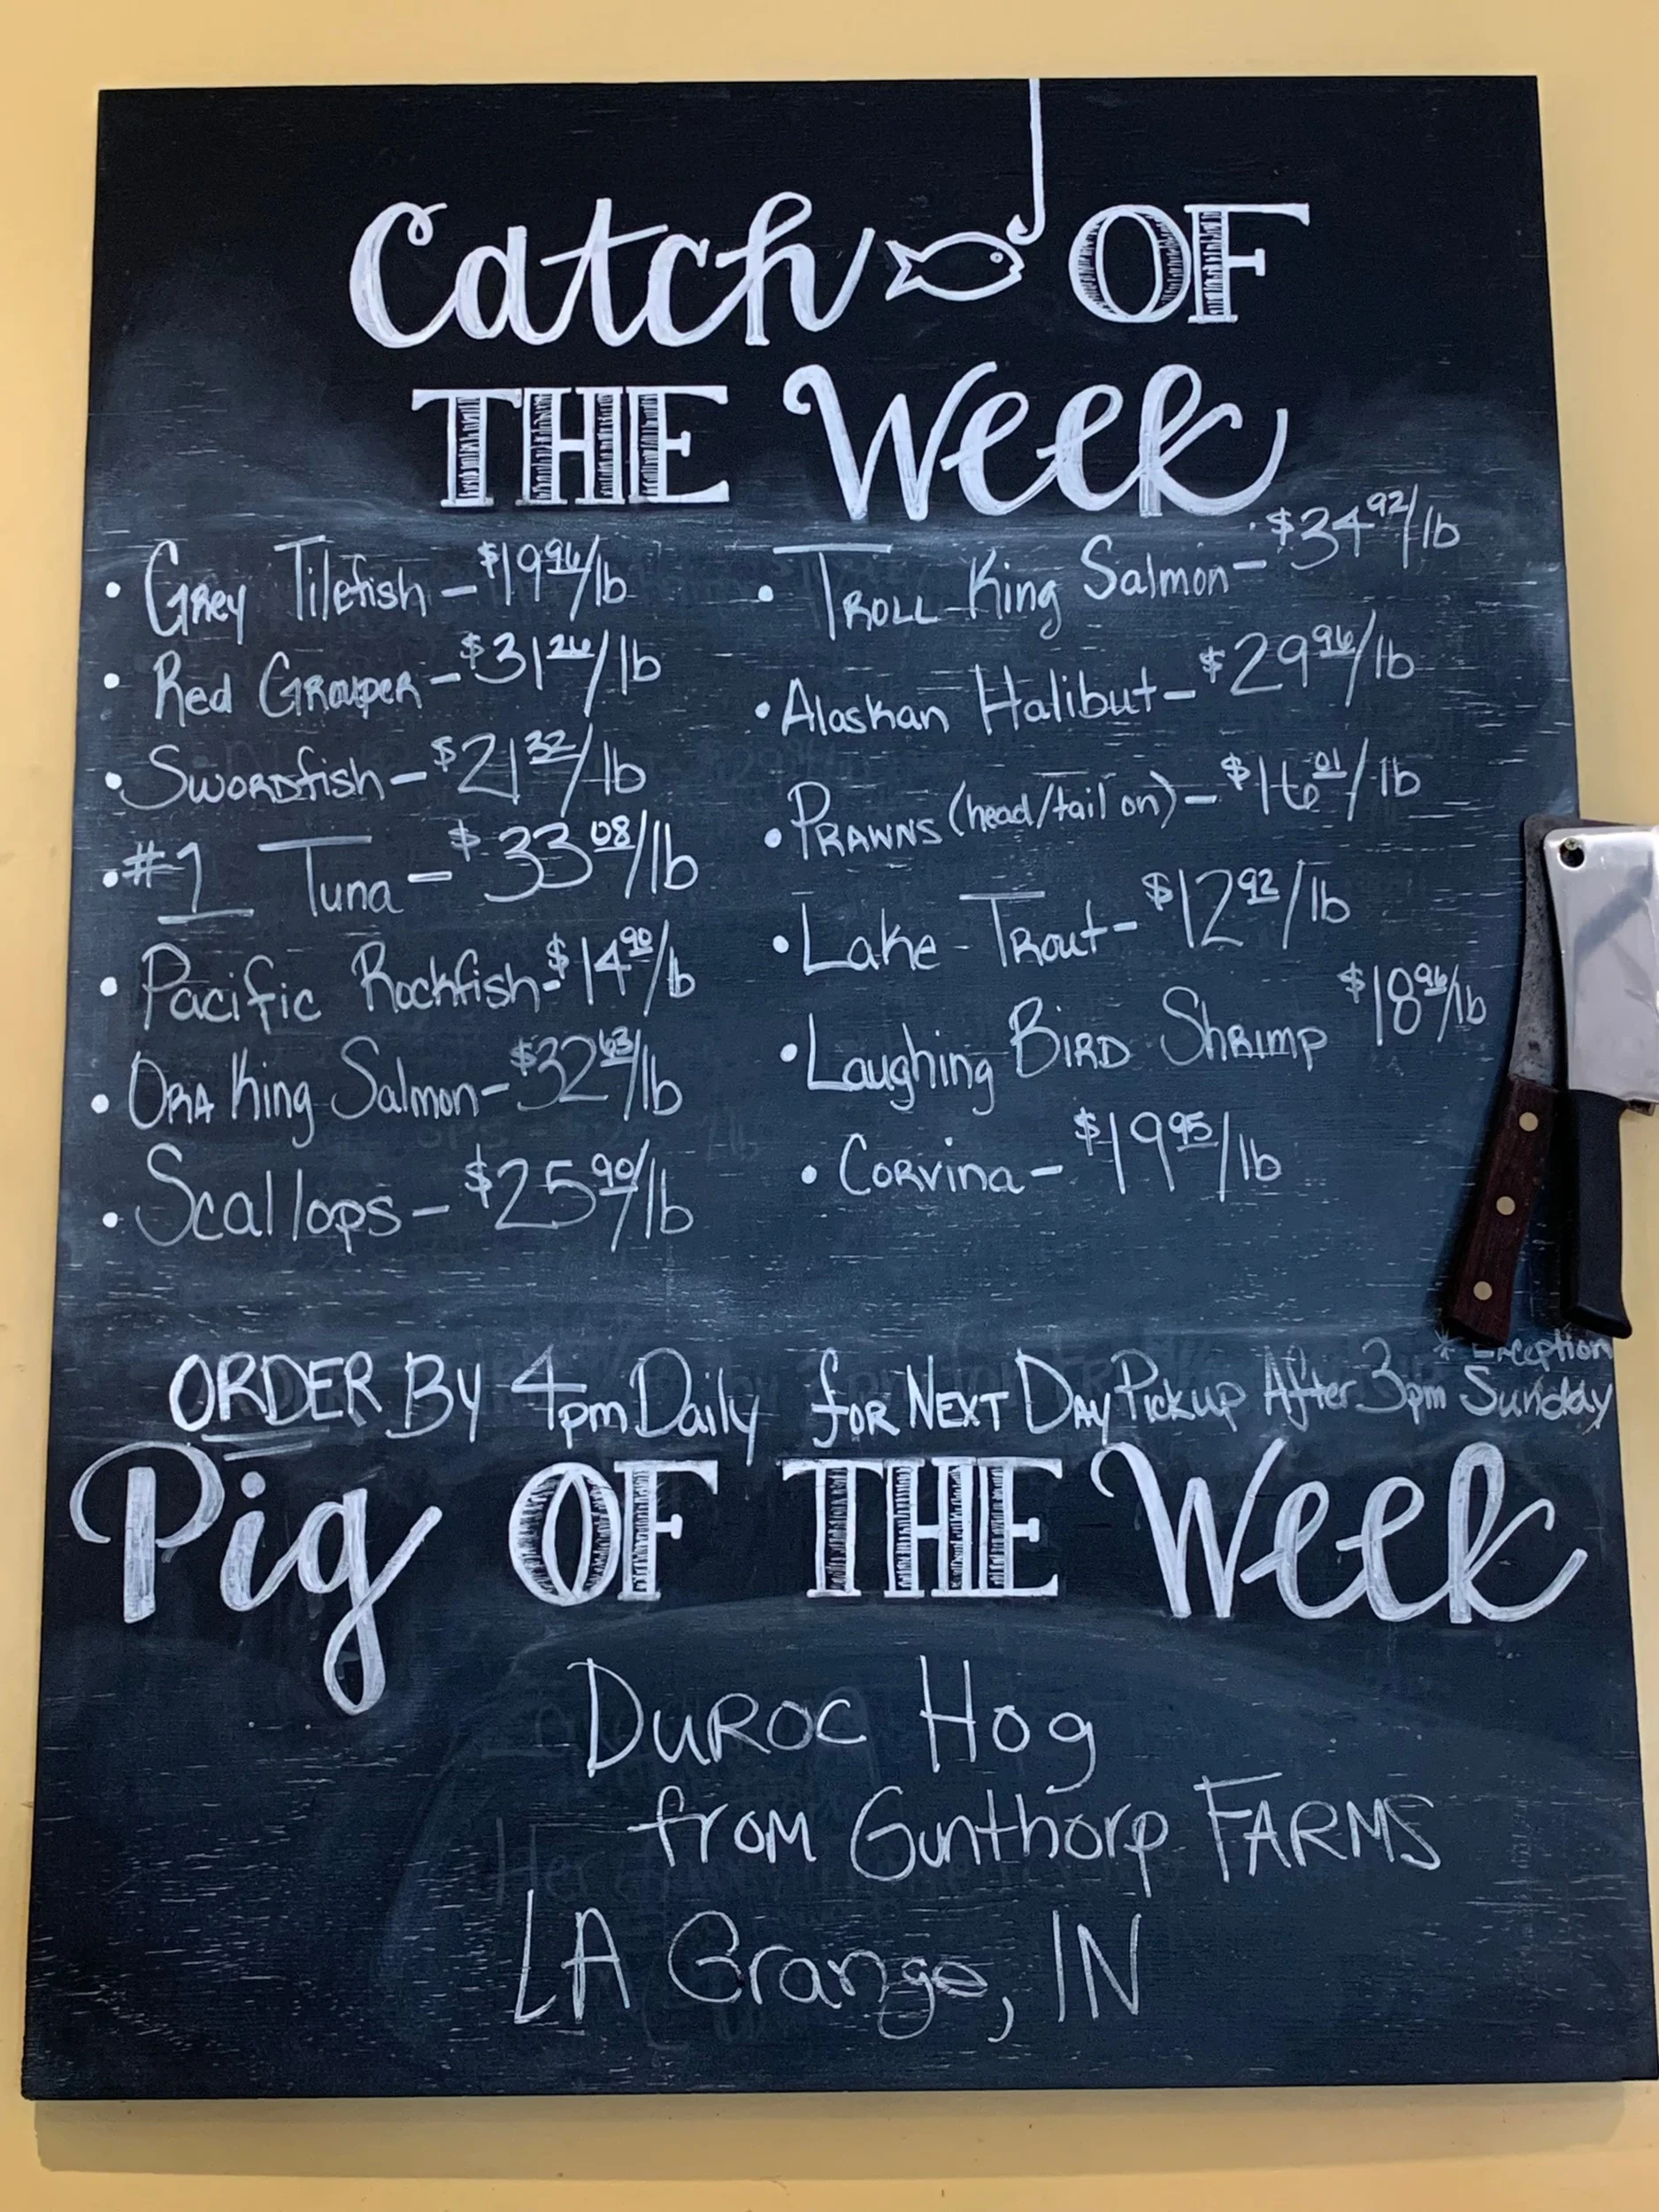 Catch OF
THE Week
• Grey Tilefish - $19.96/lb
• Red Grouper - $31.26/lb
• Swordfish - $21.32/lb
• #1 Tuna - $33.08/lb
• Pacific Rockfish - $14.90/lb
• ORA King Salmon - $32.63/lb
• Scallops - $25.90/lb
• TROLL King Salmon - $34.92/lb
• Alaskan Halibut - $29.96/lb
• PRAWNS (head/tail on) - $16.01/lb
• Lake Trout - $12.92/lb
• Laughing BIRD Shrimp $18.96/lb
• Corvina - $19.95/lb
* Exception
ORDER By 4pm Daily for NEXT DAY Pickup After 3pm Sunday
Pig OF THE Week
DUROC Hog
from Gunthorp FARMS
LA Grange, IN